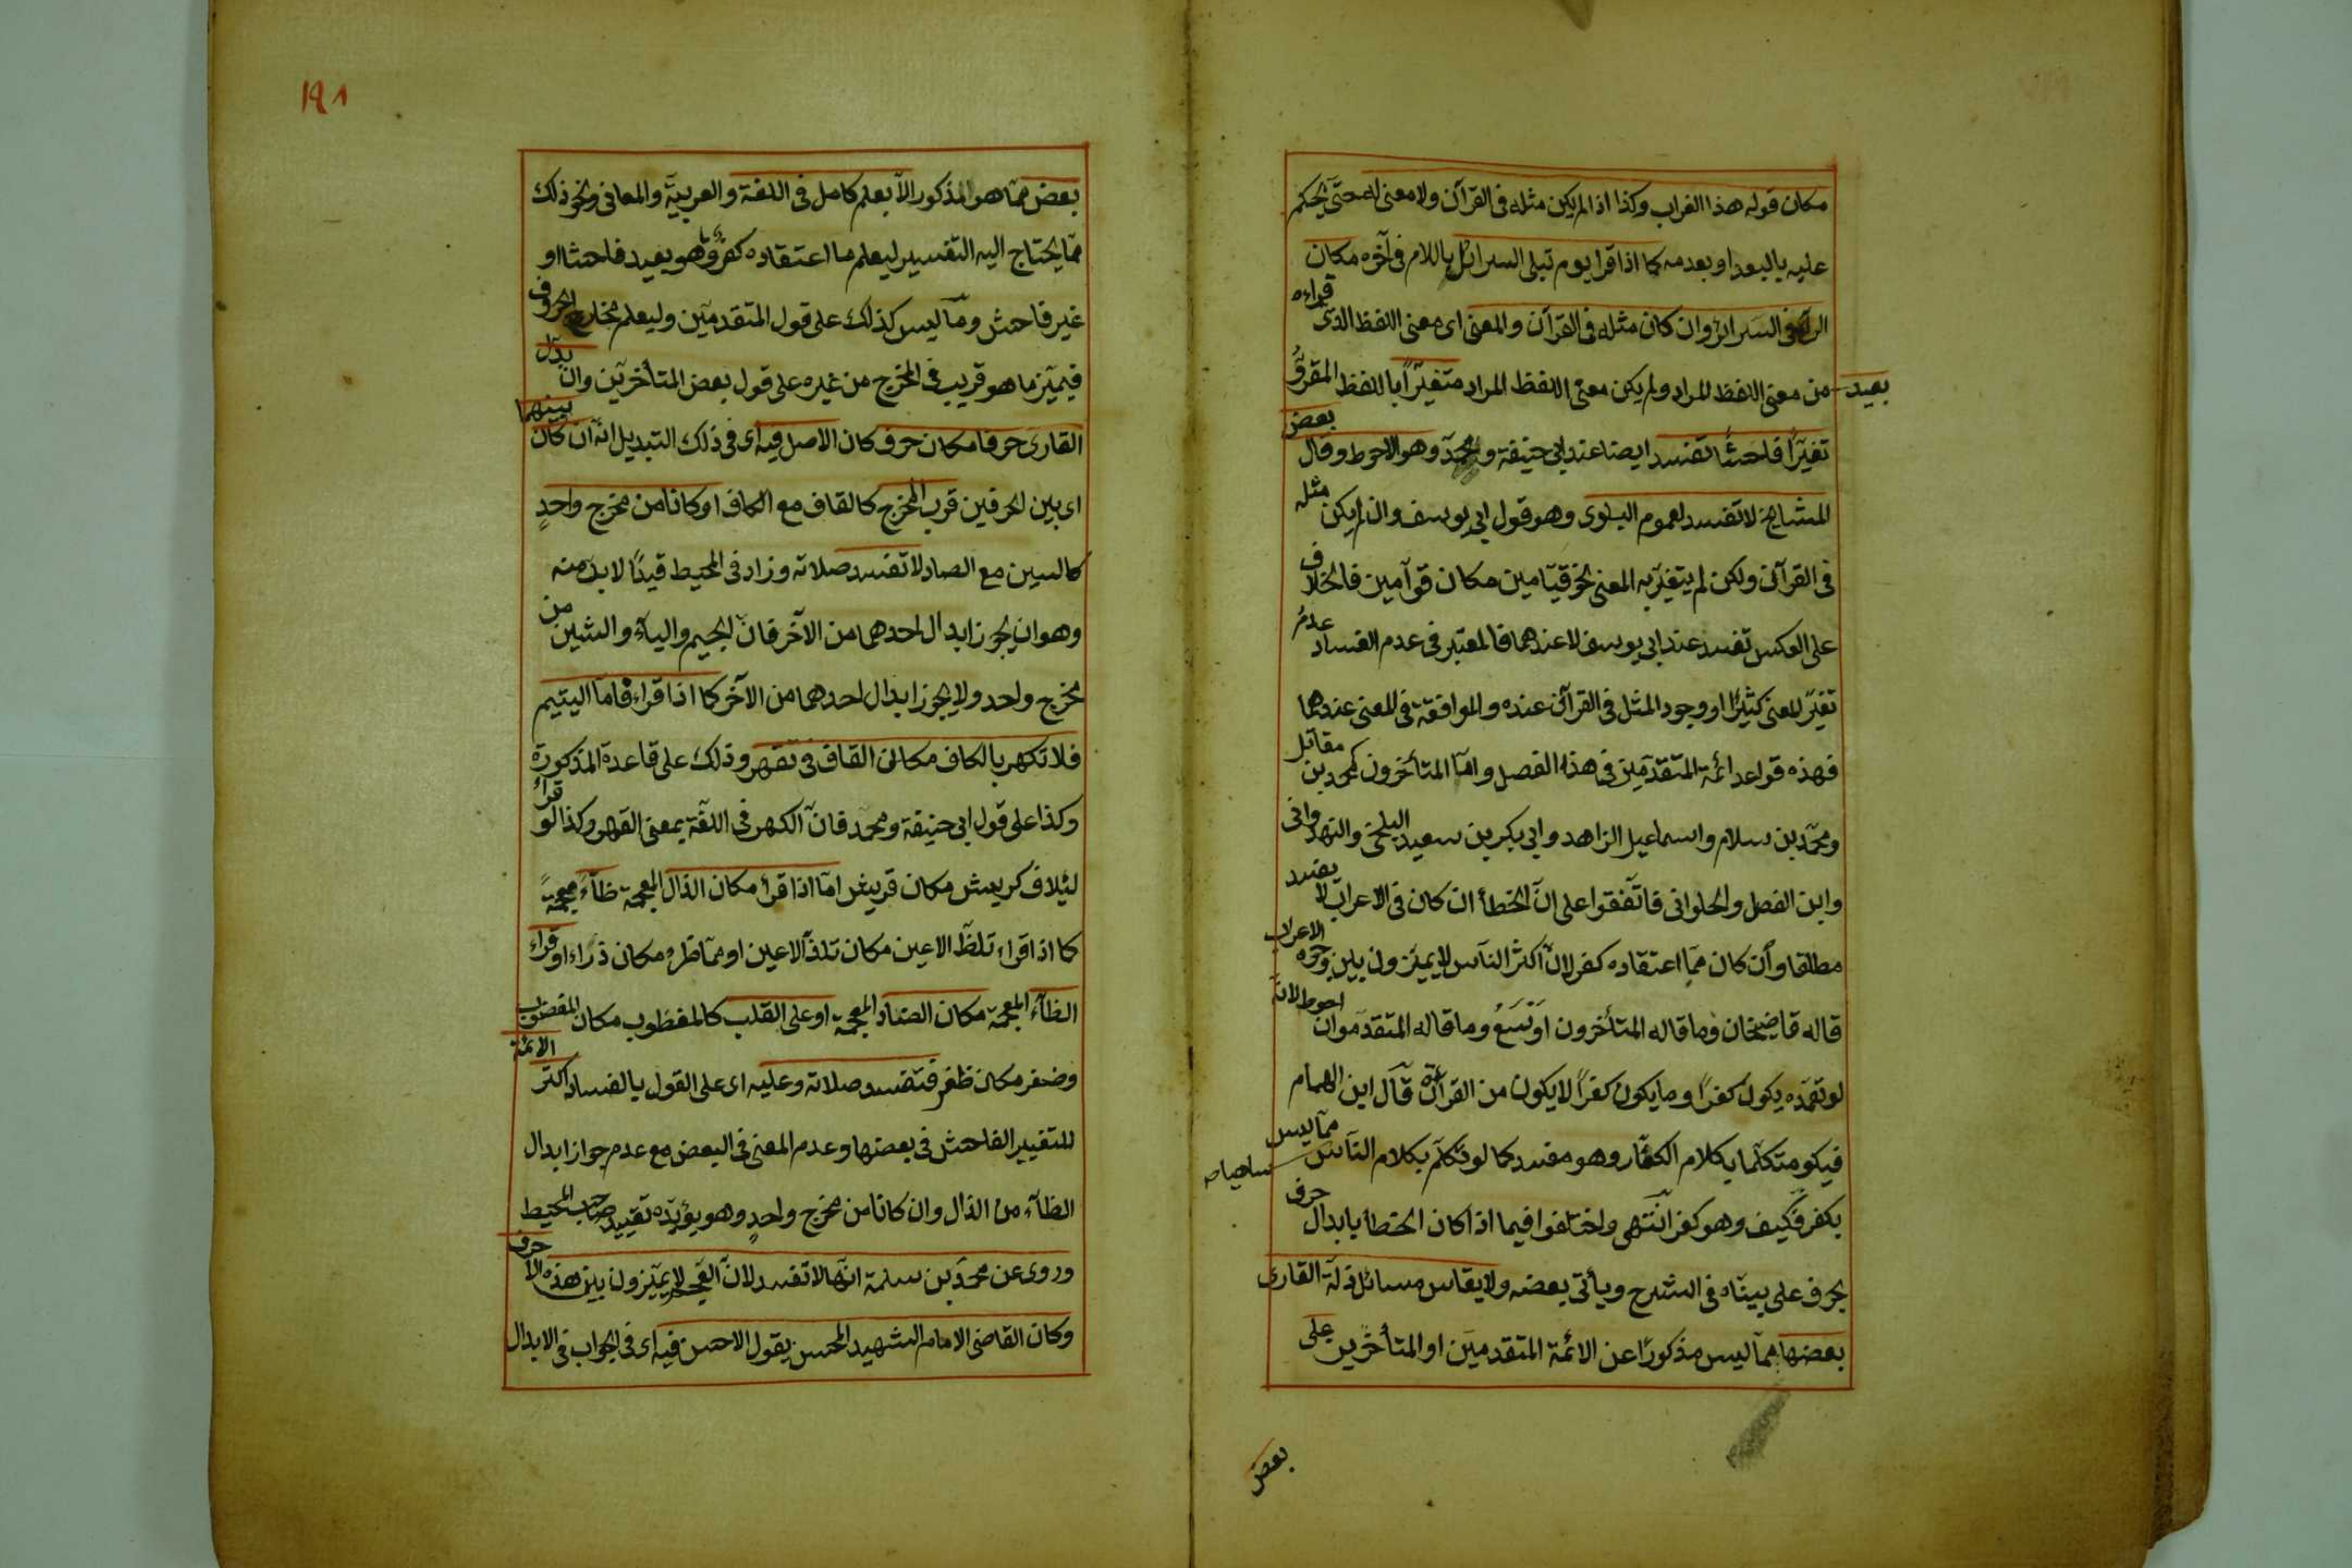 مكان قوله هذا الغراب وكذا اذا لم يكن مثله في القرآن ولا معنى له حتى يحكم
عليه بالبعد او بعدمه كما اذا قرا يوم تبلى السرائل باللام في آخره مكان
الراء في السرائر وان كان مثله في القرآن والمعنى اى معنى اللفظ الذى قراءه
بعيد من معنى اللفظ المراد ولم يكن معنى اللفظ المراد متغيرًا باللفظ المقروّ
تغيّرًا فاحشًا تفسد ايضا عند ابى حنيفة ومحمد وهو الاحوط وقال بعض
المشايخ لا تفسد لعموم البلوى وهو قول ابى يوسف وان لم يكن مثله
في القرآن ولكن لم يتغيّر به المعنى نحو قيّامين مكان قوّامين فالخلاف
على العكس تفسد عند ابى يوسف لا عندهما فالمعتبر في عدم الفساد عدمُ
تغيّر المعنى كثيرًا او وجود المثل في القرآن عنده والموافقة في المعنى عندهما
فهذه قواعد ائمة المتقدّمين في هذا الفصل وامّا المتأخرون كمحمد بن مقاتل
ومحمّد بن سلام واسماعيل الزاهد وابى بكر بن سعيد البلخى والهندوانى
وابن الفضل والحلوانى فاتّفقوا على انّ الخطأ ان كان في الاعراب لا يفسد
مطلقا وأن كان ممّا اعتقاده كفر لانّ اكثر الناس لا يميّزون بين وجوه الاعراب
قاله قاضيخان وما قاله المتأخرون اوسَعُ وما قاله المتقدّمون احوط لانّه
لو تعمّده يكون كفرًا وما يكون كفرًا لا يكون من القرآن قال ابن الهمام
فيكو متكلّما بكلام الكفّار وهو مفسد كما لو تكلّم بكلام النّاس ساهيا ممّا ليس
بكفر فكيف وهو كفر انتهى واختلفوا فيما اذا كان الخطأ بابدال حرف
بحرف على بيناه في الشرح ويأتى بعضه ولا يقاس مسائل زلّة القارى
بعضها ممّا ليس مذكورًا عن الائمّة المتقدمين او المتأخّرين على
بعض
١٩١
بعض ممّا هو المذكور الّا بعلم كامل في اللغة والعربيّة والمعانى ونحو ذلك
ممّا يحتاج اليه التفسير ليعلم ما اعتقاده كفر وما هو بعيد فاحشا او
غير فاحش وما ليس كذلك على قول المتقدمين وليعلم مخارج الحروف
فيميّز ما هو قريب في المخرج من غيره على قول بعض المتأخرين وان بدّل
القارى حرفا مكان حرف كان الاصل فيه اى في ذلك التبديل انّه ان كان بينهما
اى بين الحرفين قرب المخرج كالقاف مع الكاف او كانا من مخرج واحدٍ
كالسين مع الصاد لا تفسد صلاته وزاد في المحيط قيدًا لا بدّ منه
وهو ان يجوز ابدال احدهما من الآخر فانّ الجيم والياء والشين من
مخرج واحد ولا يجوز ابدال احدهما من الآخر كما اذا قراء فامّا اليتيم
فلا تكهر بالكاف مكان القاف في تقهر وذلك على قاعدة المذكورة
وكذا على قول ابى حنيفة ومحمّد فانّ الكهر في اللغة بمعنى القهر وكذا لو قراء
لئيلاف كريش مكان قريش امّا اذا قرأ مكان الذال المعجمة ظاءً معجمةً
كما اذا قراء تلظّ الاعين مكان تلذّ الاعين او ممّا ظرء مكان ذراء او قراء
الظاء المعجمة مكان الضاد المعجمة او على القلب كالمغظوب مكان المغضوب
وضفر مكان ظفر فتفسد صلاته وعليه اى على القول بالفساد اكثر الائمّة
للتغيير الفاحش في بعضها وعدم المعنى في البعض مع عدم جواز ابدال
الظاء من الذال وان كانا من مخرج واحدٍ وهو يؤيّده تقييد صاحب المحيط
وروى عن محمّد بن سلمة انّها لا تفسد لانّ العجم لا يميّزون بين هذه الاحرف
وكان القاضى الامام الشهيد المحسن يقول الاحسن فيه اى في الجواب في الابدال